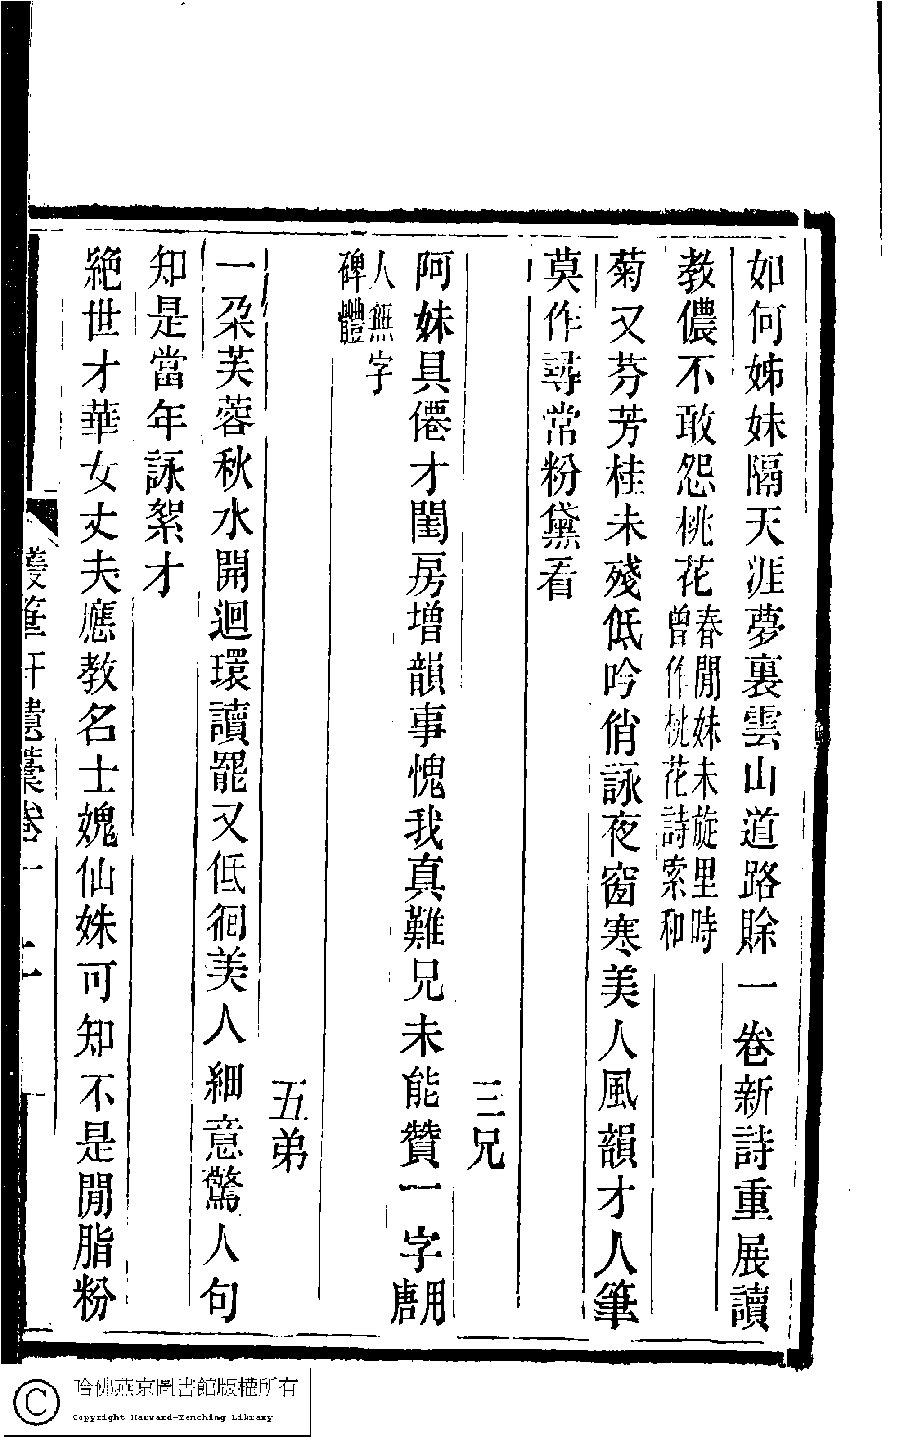 如何姊妹隔天涯夢裏雲山道路賖一卷新詩重展讀
教儂不敢怨桃花春閒妹未旋里時曾作桃花詩索和
菊又芬芳桂未殘低吟俏詠夜窗寒美人風韻才人筆
莫作尋常粉黛看
三兄
阿妹具僊才閨房增韻事愧我真難兄未能贊一字用唐
人無字碑體
五弟
一朶芙蓉秋水開迴環讀罷又低徊美人細意驚人句
知是當年詠絮才
絕世才華女丈夫應教名士媿仙姝可知不是閒脂粉
軒遺藁卷
哈佛燕京圖書館版權所有
Copyright Harvard-Yenching Library